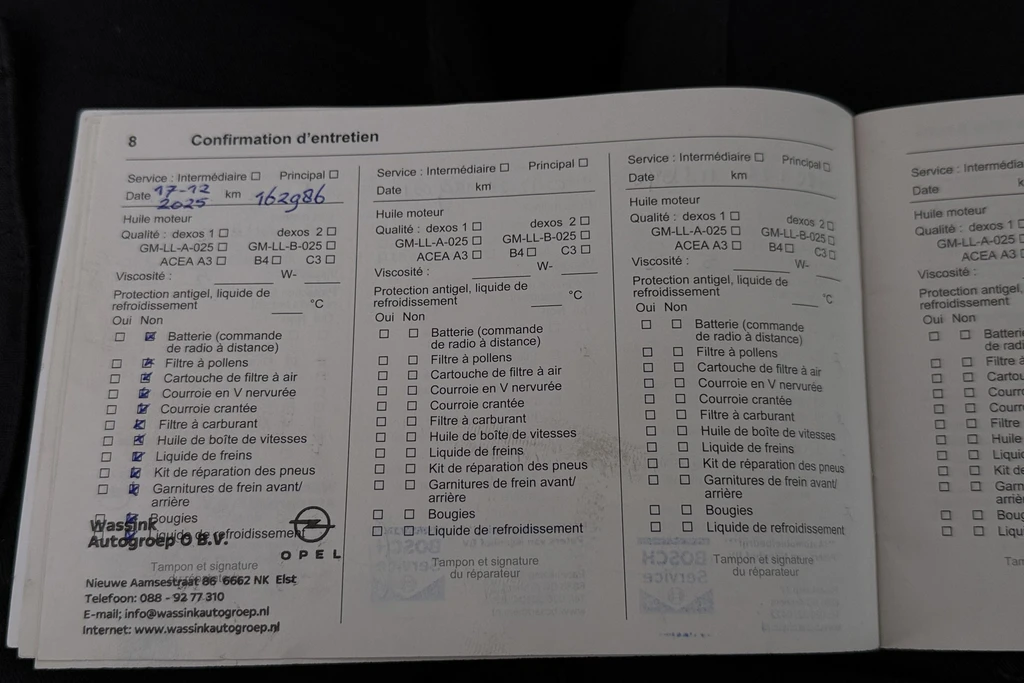 8 Confirmation d'entretien
Service : Intermédiaire ☐ Principal ☐
Date 17-12 2025 km 162986
Huile moteur
Qualité : dexos 1 ☐ dexos 2 ☐
GM-LL-A-025 ☐ GM-LL-B-025 ☐
ACEA A3 ☐ B4 ☐ C3 ☐
Viscosité : ____ W- ____
Protection antigel, liquide de
refroidissement ____ °C
Oui Non
☐ ☒ Batterie (commande
de radio à distance)
☐ ☒ Filtre à pollens
☐ ☒ Cartouche de filtre à air
☐ ☒ Courroie en V nervurée
☐ ☒ Courroie crantée
☐ ☒ Filtre à carburant
☐ ☒ Huile de boîte de vitesses
☐ ☒ Liquide de freins
☐ ☒ Kit de réparation des pneus
☐ ☒ Garnitures de frein avant/
arrière
☒ Bougies
☒ Liquide de refroidissement
Wassink
Autogroep O B.V.
OPEL
Tampon et signature
du réparateur
Nieuwe Aamsestraat 86 6662 NK Elst
Telefoon: 088 - 92 77 310
E-mail; info@wassinkautogroep.nl
Internet: www.wassinkautogroep.nl
Service : Intermédiaire ☐ Principal ☐
Date km
Huile moteur
Qualité : dexos 1 ☐ dexos 2 ☐
GM-LL-A-025 ☐ GM-LL-B-025 ☐
ACEA A3 ☐ B4 ☐ C3 ☐
Viscosité : ____ W- ____
Protection antigel, liquide de
refroidissement ____ °C
Oui Non
☐ ☐ Batterie (commande
de radio à distance)
☐ ☐ Filtre à pollens
☐ ☐ Cartouche de filtre à air
☐ ☐ Courroie en V nervurée
☐ ☐ Courroie crantée
☐ ☐ Filtre à carburant
☐ ☐ Huile de boîte de vitesses
☐ ☐ Liquide de freins
☐ ☐ Kit de réparation des pneus
☐ ☐ Garnitures de frein avant/
arrière
☐ ☐ Bougies
☐ ☐ Liquide de refroidissement
Tampon et signature
du réparateur
Service : Intermédiaire ☐ Principal ☐
Date km
Huile moteur
Qualité : dexos 1 ☐ dexos 2 ☐
GM-LL-A-025 ☐ GM-LL-B-025 ☐
ACEA A3 ☐ B4 ☐ C3 ☐
Viscosité : ____ W- ____
Protection antigel, liquide de
refroidissement ____ °C
Oui Non
☐ ☐ Batterie (commande
de radio à distance)
☐ ☐ Filtre à pollens
☐ ☐ Cartouche de filtre à air
☐ ☐ Courroie en V nervurée
☐ ☐ Courroie crantée
☐ ☐ Filtre à carburant
☐ ☐ Huile de boîte de vitesses
☐ ☐ Liquide de freins
☐ ☐ Kit de réparation des pneus
☐ ☐ Garnitures de frein avant/
arrière
☐ ☐ Bougies
☐ ☐ Liquide de refroidissement
Tampon et signature
du réparateur
Service : Intermédia
Date k
Huile moteur
Qualité : dexos 1 ☐
GM-LL-A-025 ☐
ACEA A3 ☐
Viscosité :
Protection antigel,
refroidissement
Oui Non
☐ ☐ Batteri
de radi
☐ ☐ Filtre à
☐ ☐ Cartou
☐ ☐ Courr
☐ ☐ Courr
☐ ☐ Filtre
☐ ☐ Huile
☐ ☐ Liquid
☐ ☐ Kit de
☐ ☐ Garn
arriè
☐ ☐ Boug
☐ ☐ Liqu
Tam